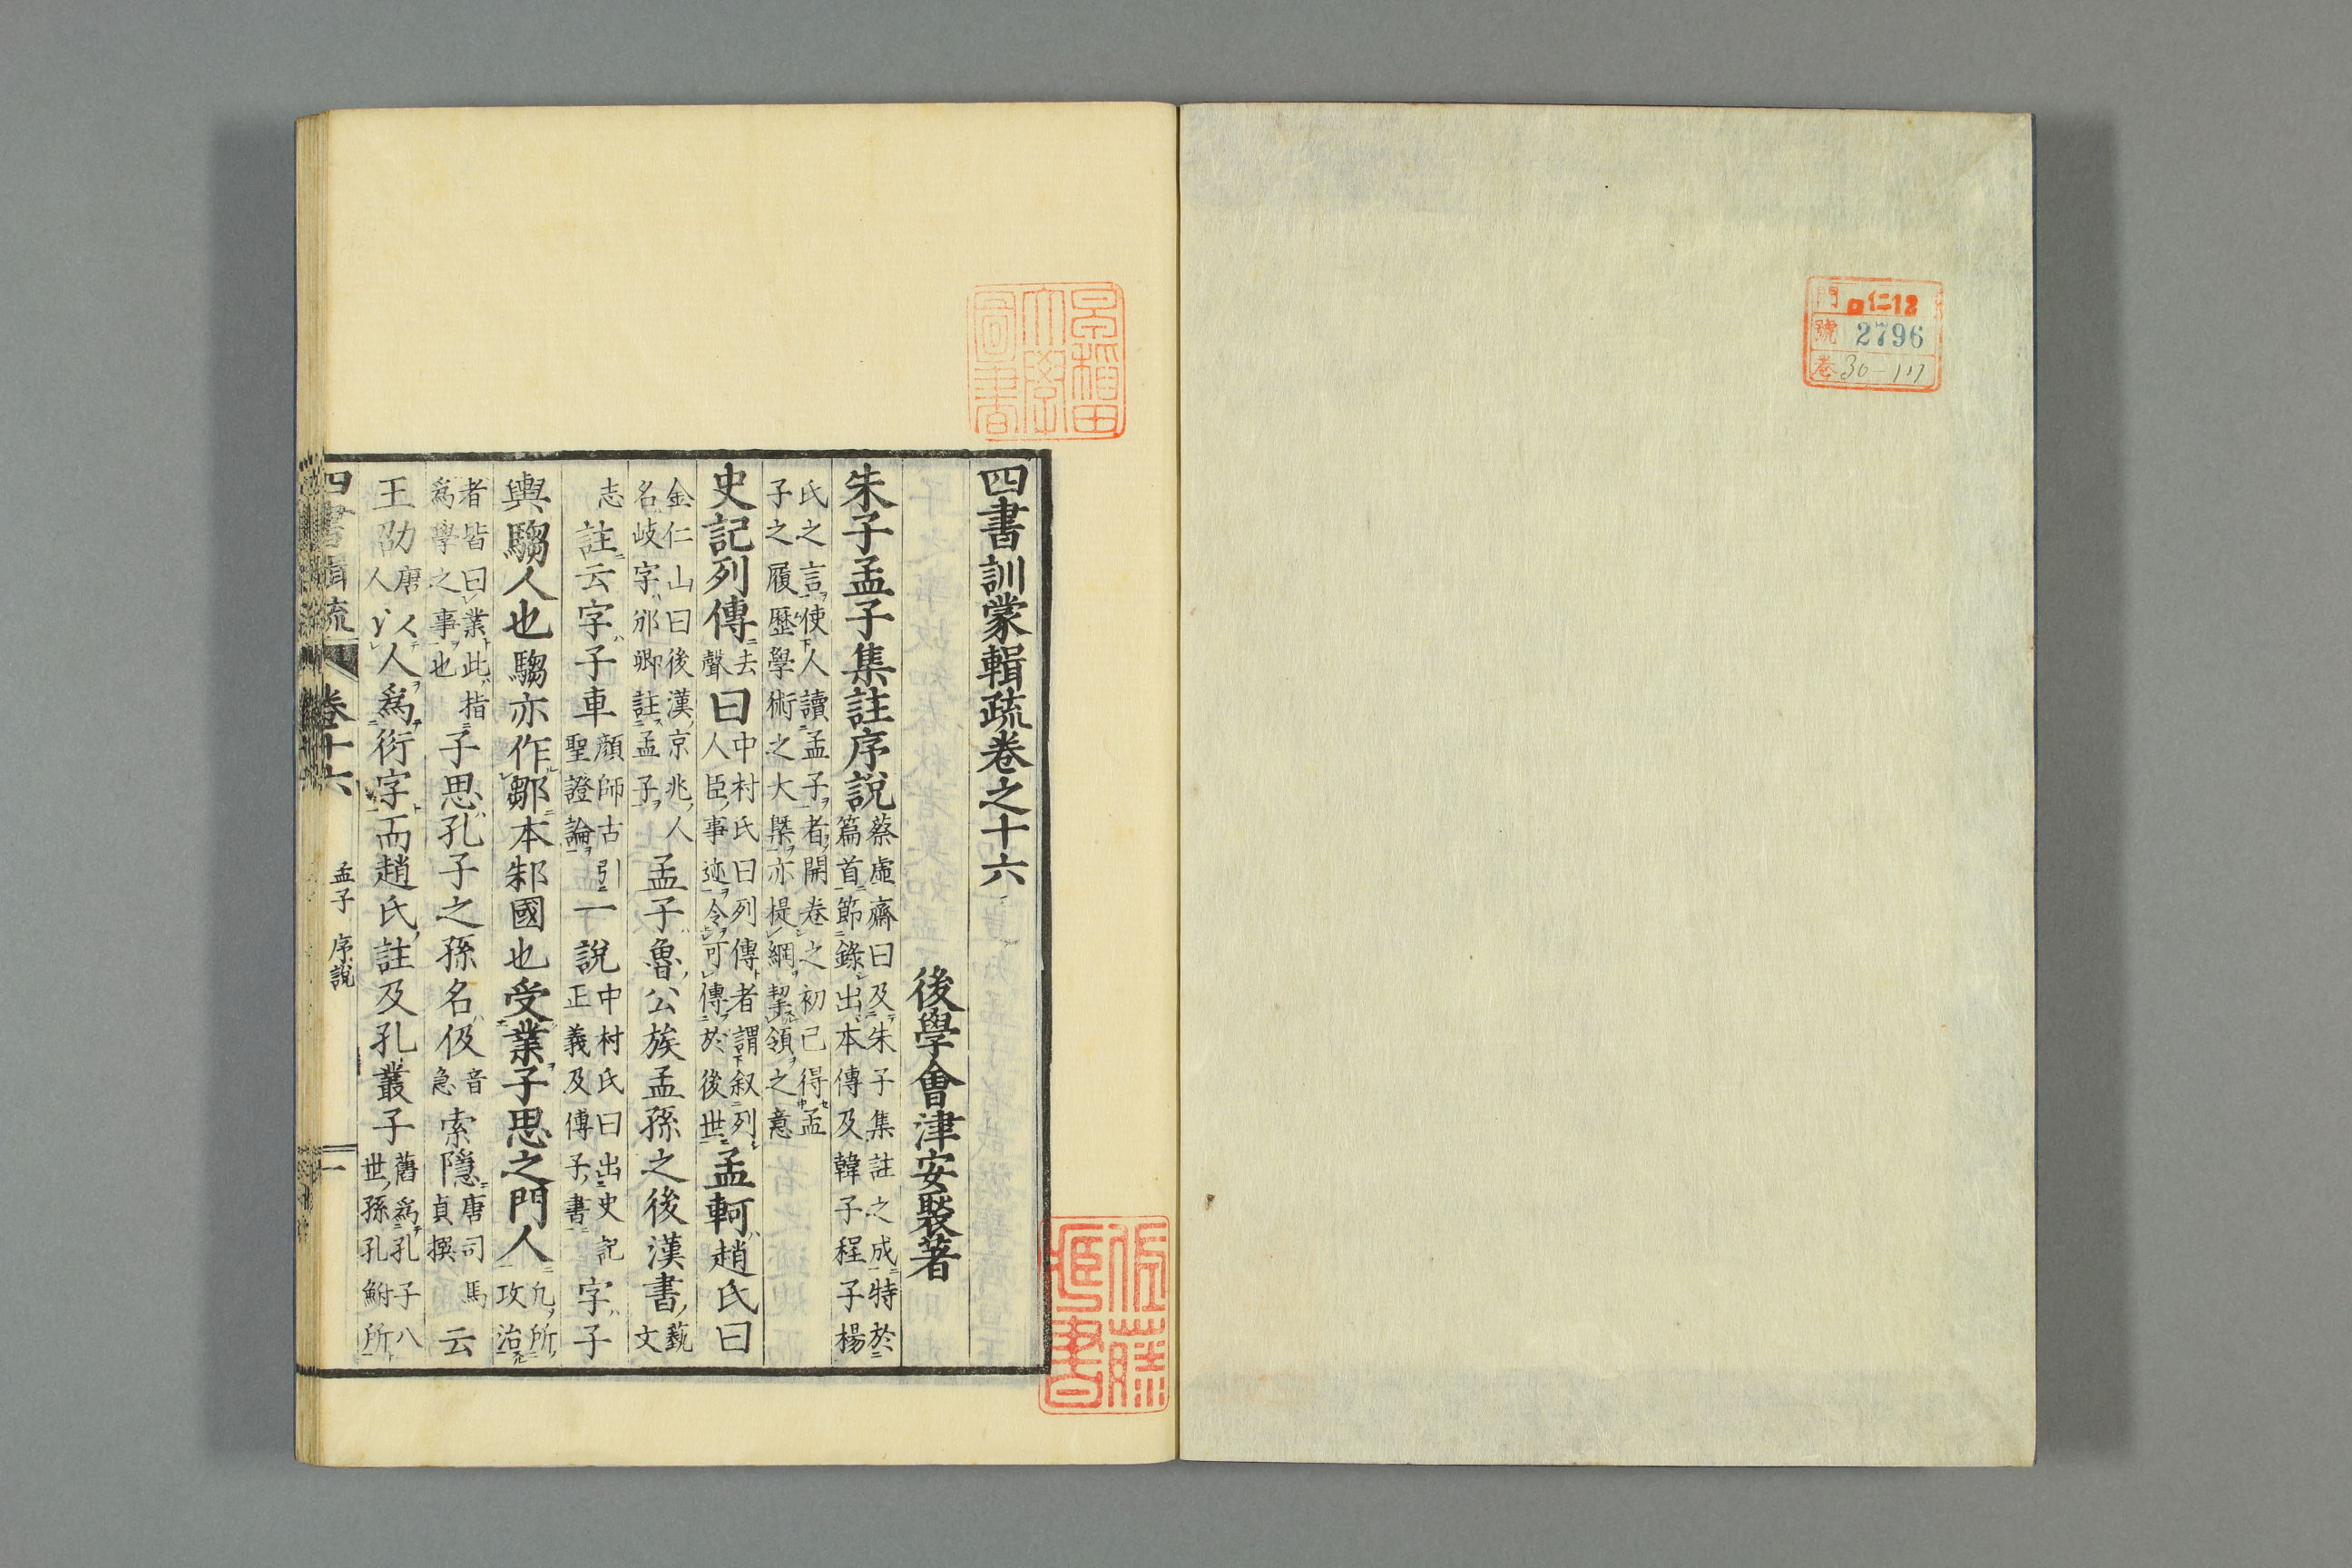 門 ロ仁12
號 2796
巻 30-17
早稲田
大學
圖書
四書訓蒙輯疏卷之十六
後學會津安褧著
朱子孟子集註序說
蔡虛齋曰及朱子集註之成特於
篇首節錄出本傳及韓子程子楊
氏之言使人讀孟子者開卷之初已得孟
子之履歷學術之大槩亦提綱挈領之意
史記列傳
去
聲
曰
中村氏曰列傳者謂叙列
人臣事迹令可傳於後世
孟軻趙氏曰
金仁山曰後漢京兆人
名岐字邠卿註孟子
孟子魯公族孟孫之後漢書
藝
文
志
註云字子車
顏師古引
聖證論
一說
中村氏曰出史記
正義及傅子書
字子
輿騶人也騶亦作鄒本邾國也受業子思之門人
凢所
攻治
者皆曰業此指
爲學之事也
子思孔子之孫名伋
音
急
索隱
唐司馬
貞撰
云
王劭
唐
人
以人爲衍字而趙氏註及孔叢子
舊爲孔子八
世孫孔鮒所
四書輯疏 卷十六 孟子 序說 一
佐藤
臣書